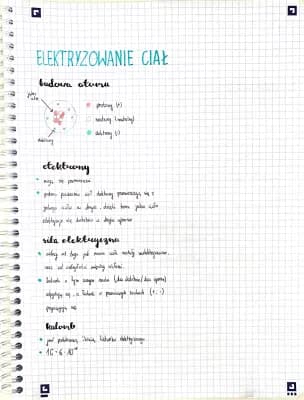 ELEKTRYZOWANIE CIAŁ
budowa atomu
jądro
protony (+)
neutrony (neutralny)
elektrony (-)
elektrony
elektrony
mogą się przemieszczać
podczas pocierania ciał elektrony przemieszczają się z
jednego ciała w drugie, dzięki temu jedno ciało
elektryzuje się dodatnio a drugie ujemnie
siła elektryczna
zależy od tego jak mocno ciała zostały naelektryzowane,
oraz od odległości między ciałami
ładunki o tym samym znaku (oba dodatnie/oba ujemne)
odpychają się, a ładunki o przeciwnych znakach (+, -)
przyciągają się
kulomb
jest podstawową ładunku elektrycznego